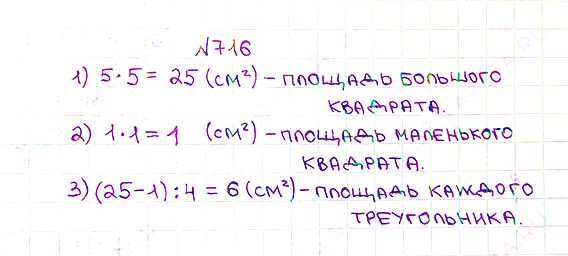 №716
1) 5·5 = 25 (см²) – площадь большого
квадрата.
2) 1·1 = 1 (см²) – площадь маленького
квадрата.
3) (25-1) : 4 = 6 (см²) – площадь каждого
треугольника.